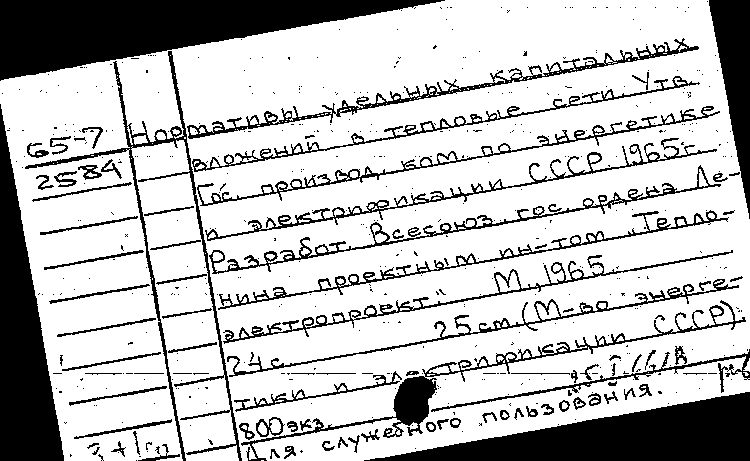 65-7
2584
Нормативы удельных капитальных
вложений в тепловые сети. Утв.
Гос. производ. ком. по энергетике
и электрификации СССР 1965г.
Разработ. Всесоюз. гос. ордена Ле-
нина проектным ин-том „Тепло-
электропроект." М., 1965
24с. 25см. (М-во энерге-
тики и электрификации СССР).
800экз.
Для служебного пользования.